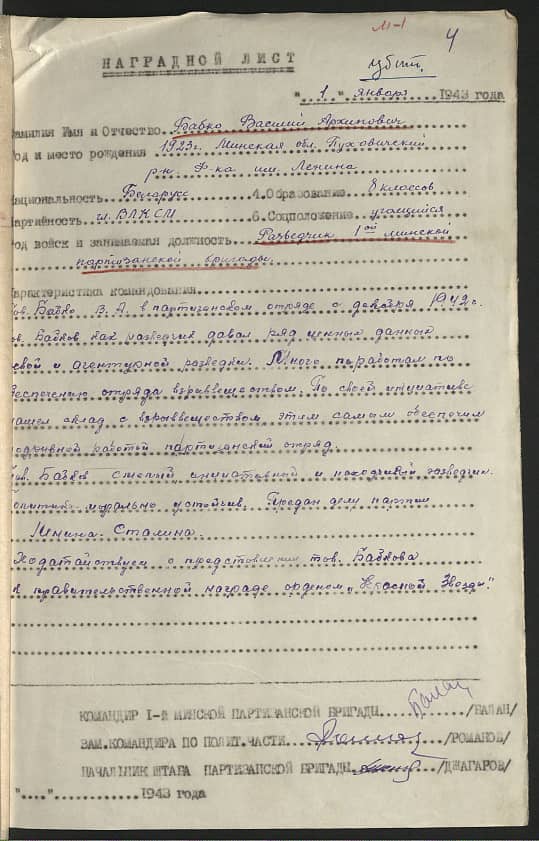 М-1
4
НАГРАДНОЙ ЛИСТ
убит.
"..1.." января 1943 года
амилия Имя и Отчество Бабко Василий Архипович
од и место рождения 1923г. Минская обл. Пуховичский
р-н ф-ка им. Ленина
ациональность Беларусс 4.Образование 8 классов
артийность чл. ВЛКСМ 6.Соцположение учащийся
од войск и занимаемая должность Разведчик 1ой минской
партизанской бригады.
Характеристика командования
ов. Бабко В. А. в партизанском отряде с декабря 1942 г.
ов. Бабков как разведчик давал ряд ценных данных
евой и агентурной разведки. Много поработал по
беспечению отряда взрыввеществом. По своей инициативе
нашел склад с взрыввеществом, этим самым обеспечил
подрывной работой партизанский отряд.
ов. Бабков смелый инициативный и находчивый разведчик.
Политич. морально устойчив. Предан делу партии
Ленина-Сталина.
Ходатайствуем о представлении тов. Бабкова
к правительственной награде орденом „Красной Звезды".
КОМАНДИР I-й МИНСКОЙ ПАРТИЗАНСКОЙ БРИГАДЫ Балан /БАЛАН/
ЗАМ.КОМАНДИРА ПО ПОЛИТ.ЧАСТИ /РОМАНОВ/
НАЧАЛЬНИК ШТАБА ПАРТИЗАНСКОЙ БРИГАДЫ /ДЖАГАРОВ/
"....".............1943 года